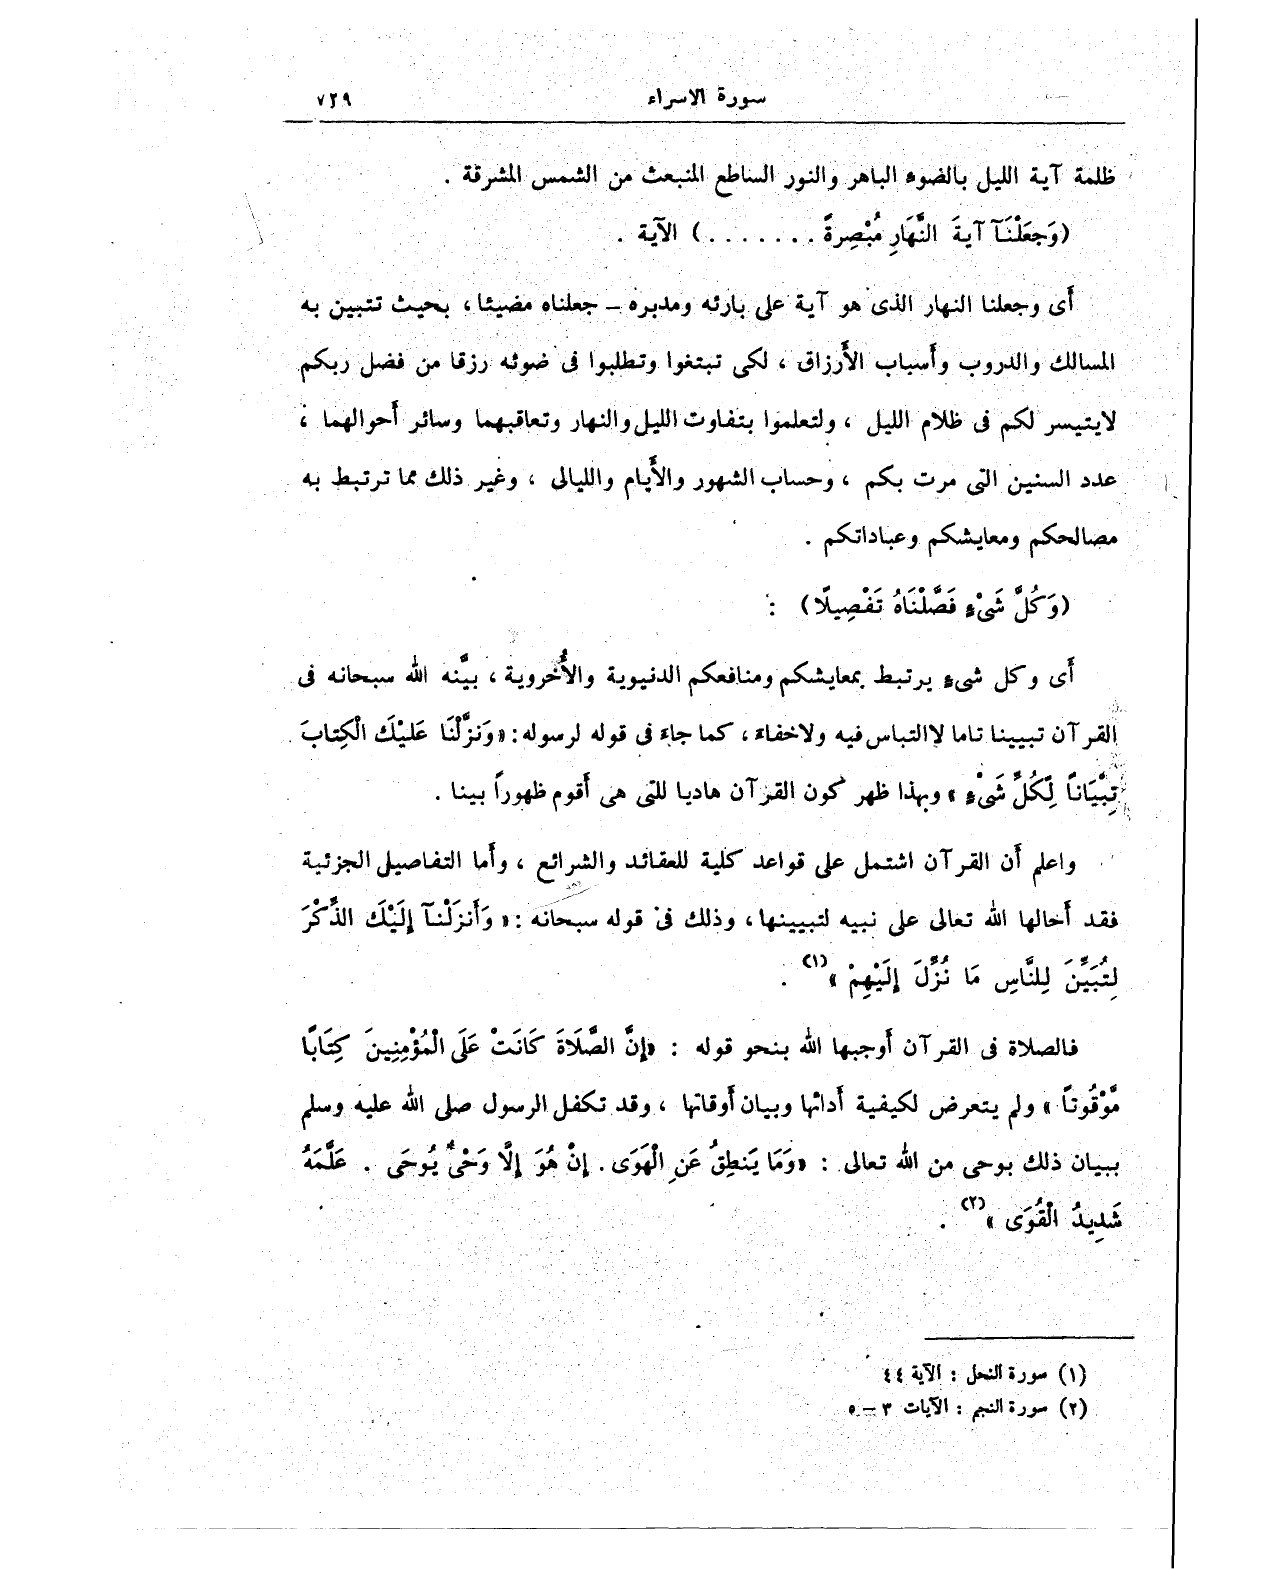 سورة الاسراء ٧٢٩
ظلمة آية الليل بالضوء الباهر والنور الساطع المنبعث من الشمس المشرقة .
(وَجَعَلْنَآ آيةَ النَّهَارِ مُبْصِرةً . . . . . . .) الآية .
أَى وجعلنا النهار الذى هو آية على بارئه ومدبره – جعلناه مضيئا ، بحيث تتبين به
المسالك والدروب وأَسباب الأَرزاق ، لكى تبتغوا وتطلبوا فى ضوئه رزقا من فضل ربكم
لايتيسر لكم فى ظلام الليل ، ولتعلموا بتفاوت الليل والنهار وتعاقبهما وسائر أَحوالهما ،
عدد السنين التى مرت بكم ، وحساب الشهور والأَيام والليالى ، وغير ذلك مما ترتبط به
مصالحكم ومعايشكم وعباداتكم .
(وَكُلَّ شَىْءٍ فَصَّلْنَاهُ تَفْصِيلًا) :
أَى وكل شىءٍ يرتبط بمعايشكم ومنافعكم الدنيوية والأُخروية ، بيَّنه الله سبحانه فى
القرآن تبيينا تاما لاالتباس فيه ولاخفاءَ ، كما جاءَ فى قوله لرسوله : «وَنزَّلْنَا عَليْكَ الْكِتابَ
تِبْيَاناً لِّكُلِّ شَىْءٍ » وبهذا ظهر كون القرآن هاديا للتى هى أَقوم ظهوراً بينا .
واعلم أَن القرآن اشتمل على قواعد كلية للعقائد والشرائع ، وأَما التفاصيل الجزئية
فقد أَحالها الله تعالى على نبيه لتبيينها ، وذلك فى قوله سبحانه : « وَأَنزَلْنآ إِلَيْكَ الذِّكْرَ
لِتُبَيِّنَ لِلنَّاسِ مَا نُزِّلَ إِلَيْهِمْ »(١) .
فالصلاة فى القرآن أَوجبها الله بنحو قوله : «إِنَّ الصَّلَاةَ كَانَتْ عَلَى الْمُؤْمِنِينَ كِتَابًا
مَّوْقُوتاً » ولم يتعرض لكيفية أَدائها وبيان أَوقاتها ، وقد تكفل الرسول صلى الله عليه وسلم
ببيان ذلك بوحى من الله تعالى : «وَمَا يَنطِقُ عَنِ الْهَوَى . إِنْ هُوَ إِلَّا وَحْىٌ يُوحَى . عَلَّمَهُ
شَدِيدُ الْقُوَى »(٢) .
(١) سورة النحل : الآية ٤٤
(٢) سورة النجم : الآيات ٣ – ٥